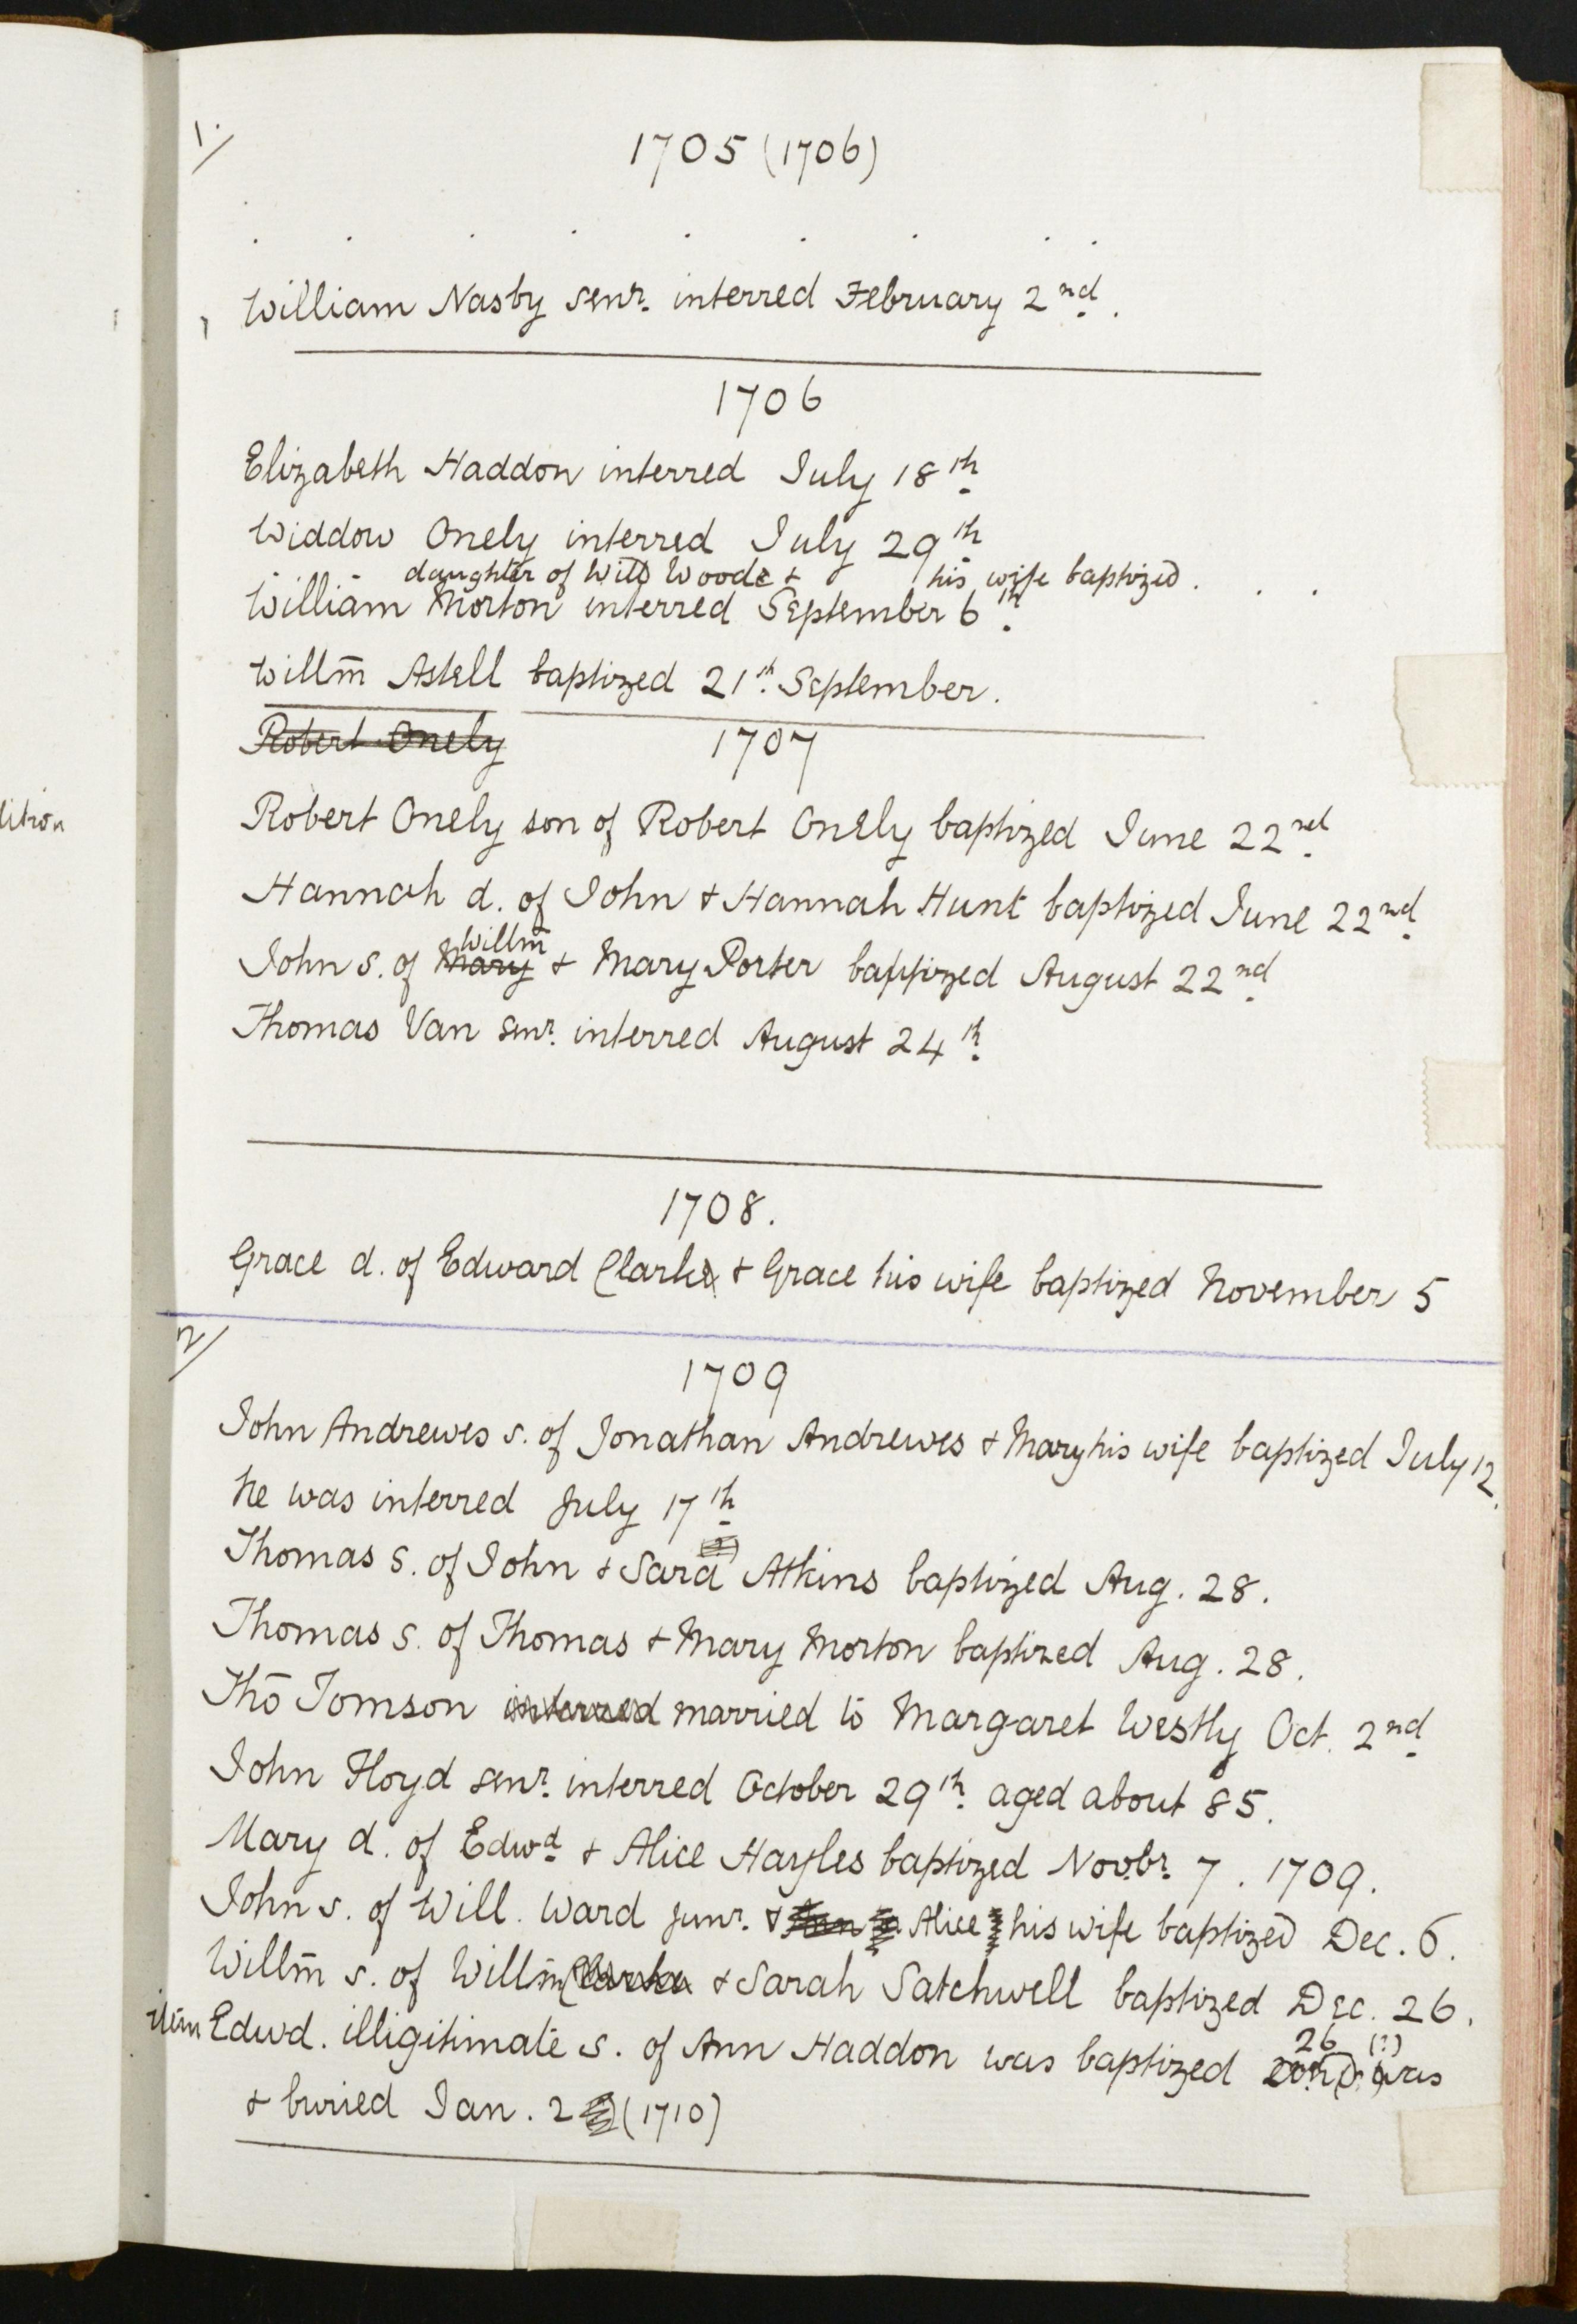 1/
1705 (1706)
. . . . . . . . .
William Nasby senr. interred February 2nd.
1706
Elizabeth Haddon interred July 18th
Widdow Onely interred July 29th
daughter of Will Woode & his wife baptized . . .
William Morton interred September 6th
Willm̄ Astell baptized 21th September.
Robert Onely
1707
Robert Onely son of Robert Onely baptized June 22nd
Hannah d. of John & Hannah Hunt baptized June 22nd
Willm̄
John s. of Mary & Mary Porter baptized August 22nd
Thomas Van senr. interred August 24th
1708.
Grace d. of Edward Clarke & Grace his wife baptized November 5
2/
1709
John Andrewes s. of Jonathan Andrewes & Mary his wife baptized July 12.
he was interred July 17th
Thomas s. of John & Sara Atkins baptized Aug. 28.
Thomas s. of Thomas & Mary Morton baptized Aug. 28.
Thō Tomson interred married to Margaret Westly Oct. 2nd
John Floyd senr. interred October 29th aged about 85.
Mary d. of Edwd & Alice Hayles baptized Novbr. 7. 1709.
John s. of Will. Ward junr. & Alice his wife baptized Dec. 6.
Willm̄ s. of Willm̄ Clarke & Sarah Satchwell baptized Dec. 26.
26 (?)
item Edwd. illigitimate s. of Ann Haddon was baptized
& buried Jan. 2 (1710)
lition